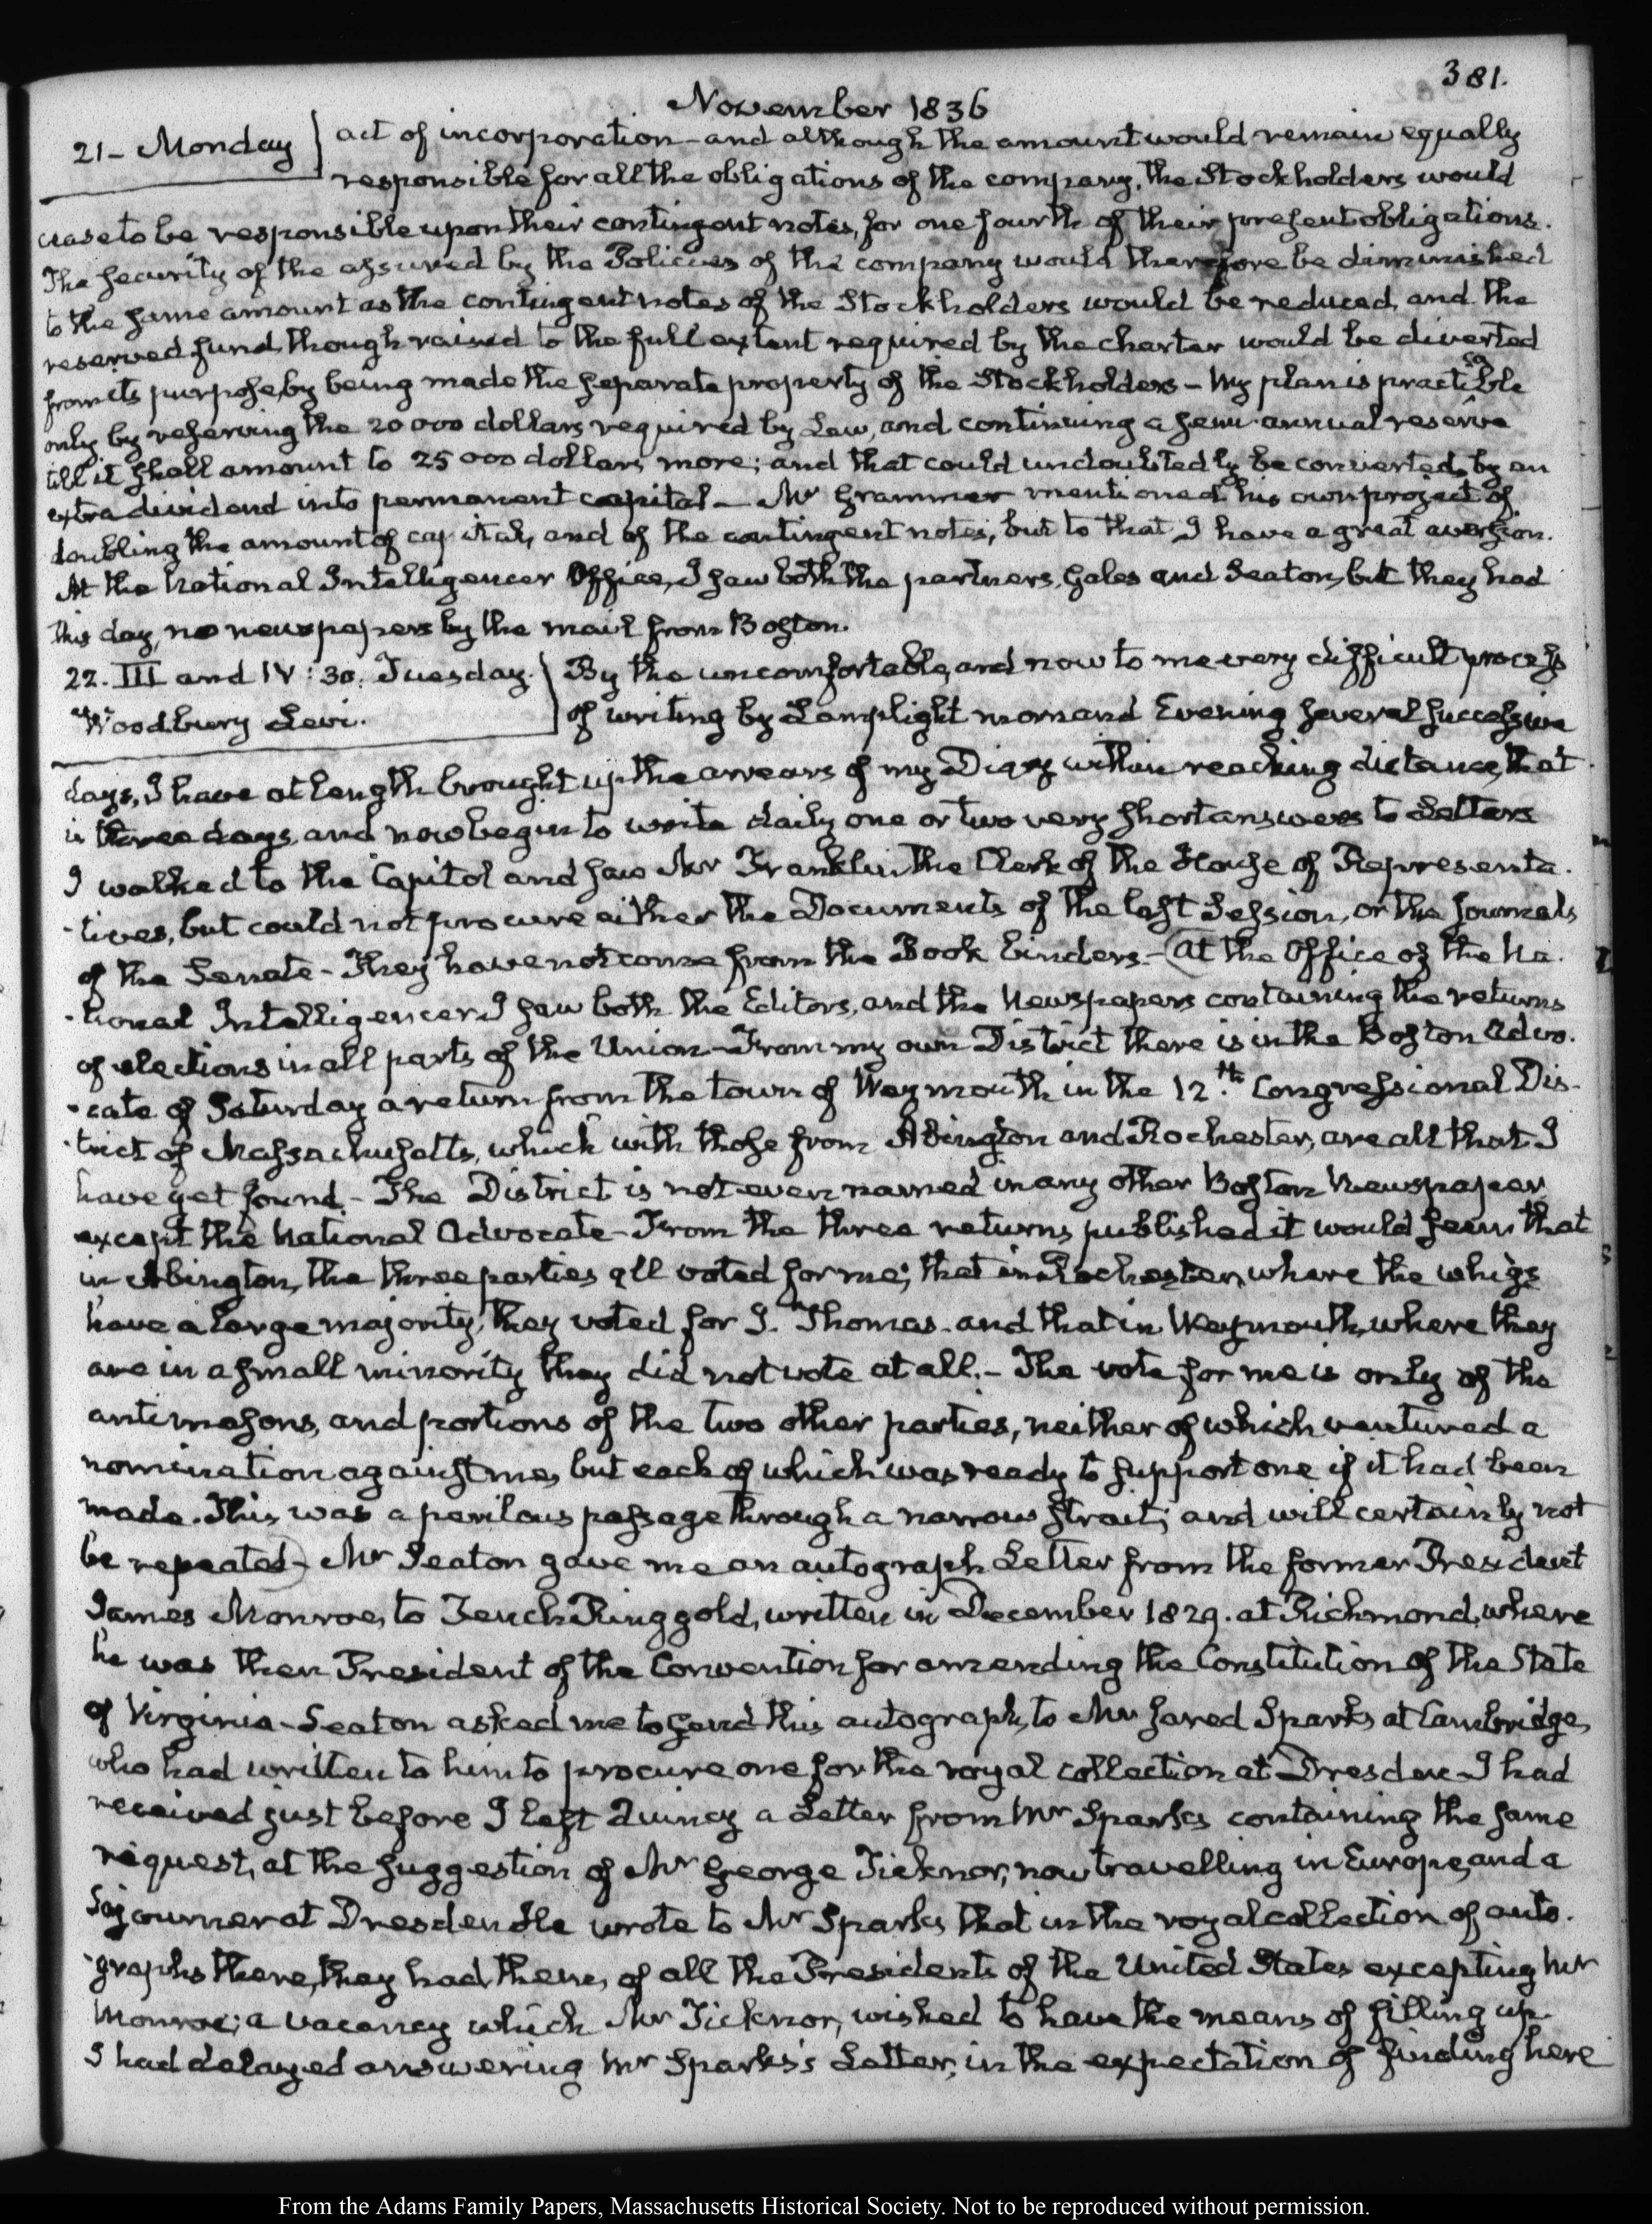 381.
November 1836
21- Monday
act of incorporation - and although the amount would remain equally
responsible for all the obligations of the company, the Stockholders would
cease to be responsible upon their contingent notes, for one fourth of their present obligations.
The security of the assured by the Policies of the company would therefore be diminished
to the same amount as the contingent notes of the Stockholders would be reduced, and the
reserved fund, though raised to the full extent required by the charter would be diverted
from its purpose, by being made the separate property of the Stockholders - My plan is practicable
only by reserving the 20 000 dollars required by Law, and continuing a semi-annual reserve
till it shall amount to 25 000 dollars more; and that could undoubtedly be converted by an
extra dividend into permanent capital - Mr Grammer mentioned his own project of
doubling the amount of capital, and of the contingent notes; but to that I have a great aversion.
At the National Intelligencer Office, I saw both the partners, Gales and Seaton, but they had
this day, no newspapers by the mail from Boston.
22. III and IV: 30. Tuesday.
Woodbury Levi.
By the uncomfortable, and now to me very difficult process
of writing by Lamplight morn and Evening several successive
days, I have at length brought up the arrears of my Diary within reaching distance, that
is three days, and now begin to write daily one or two very short answers to Letters
I walked to the Capitol and saw Mr Franklin the Clerk of the House of Representa-
-tives, but could not procure either the Documents of the last Session, or the Journals
of the Senate - They have not come from the Book binders - At the Office of the Na-
-tional Intelligencer I saw both the Editors, and the Newspapers containing the returns
of elections in all parts of the Union - From my own District there is in the Boston Advo-
-cate of Saturday a return from the town of Weymouth in the 12.th Congressional Dis-
-trict of Massachusetts, which with those from Abington and Rochester, are all that I
have yet found. - The District is not even named in any other Boston Newspaper
except the National Advocate - From the three returns published it would seem that
in Abington, the three parties all voted for me; that in Rochester, where the whigs
have a large majority, they voted for I. Thomas. and that in Weymouth, where they
are in a small minority they did not vote at all. - The vote for me is only of the
antimasons, and portions of the two other parties, neither of which ventured a
nomination against me, but each of which was ready to support one if it had been
made. This was a perilous passage through a narrow strait; and will certainly not
be repeated - Mr Seaton gave me an autograph Letter from the former President
James Monroe, to Tench Ringgold, written in December 1829. at Richmond, where
he was then President of the Convention for amending the Constitution of the State
of Virginia - Seaton asked me to send this autograph, to Mr Jared Sparks at Cambridge,
who had written to him to procure one for the royal collection at Dresden - I had
received just before I left Quincy a Letter from Mr Sparks containing the same
request, at the suggestion of Mr George Ticknor, now travelling in Europe, and a
sojourner at Dresden He wrote to Mr Sparks that in the royal collection of auto-
-graphs there, they had them, of all the Presidents of the United States excepting Mr
Monroe; a vacancy which Mr Ticknor, wished to have the means of filling up.
I had delayed answering Mr Sparks's Letter, in the expectation of finding here
From the Adams Family Papers, Massachusetts Historical Society. Not to be reproduced without permission.